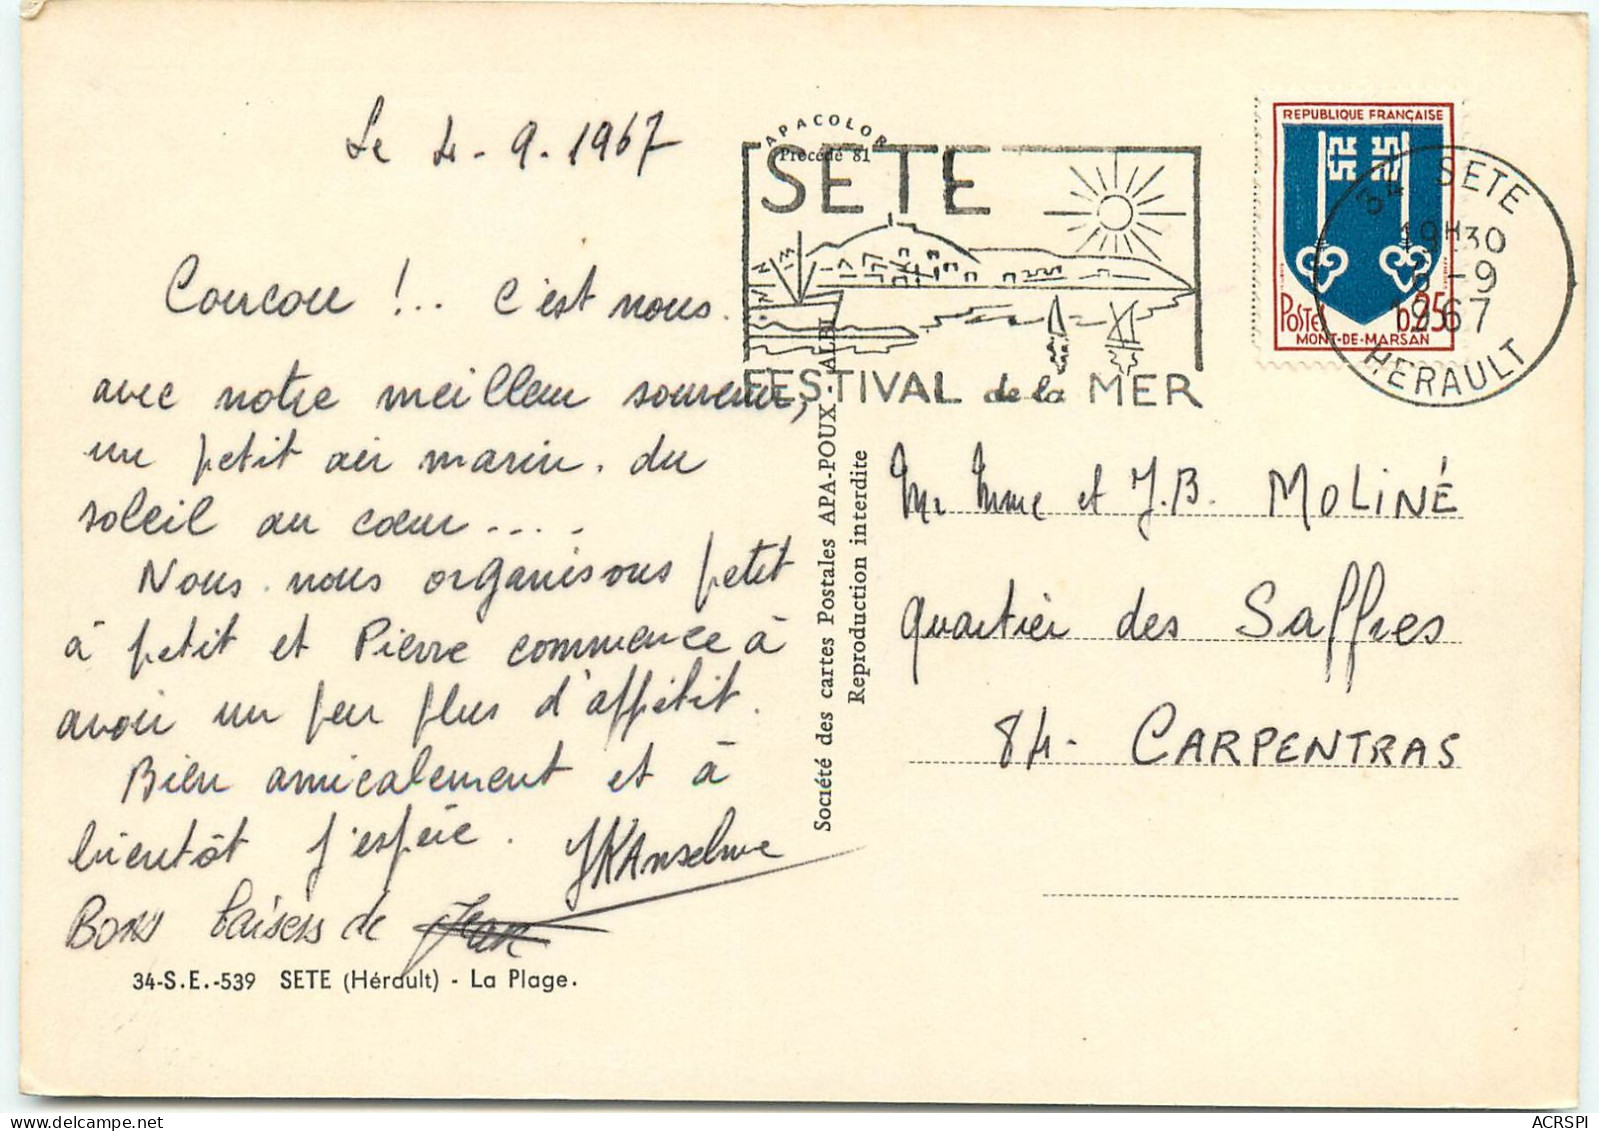 Le 4-9-1967
Coucou !.. c'est nous.
avec notre meilleur souvenir,
un petit air marin. du
soleil au cœur ....
Nous nous organisons petit
à petit et Pierre commence à
avoir un peu plus d'appétit.
Bien amicalement et à
bientôt j'espère. JKAnselme
Bons baisers de Jean
34-S.E.-539 SETE (Hérault) - La Plage.
APACOLOR
Procédé 81
SETE
FESTIVAL de la MER
Société des cartes Postales APA-POUX - ALBI
Reproduction interdite
REPUBLIQUE FRANÇAISE
Postes 0,25
MONT-DE-MARSAN
34 SETE
19H30
-9
1967
HERAULT
Mr Mme et J.B. MOLINÉ
quartier des Saffres
84- CARPENTRAS
ACRSPI